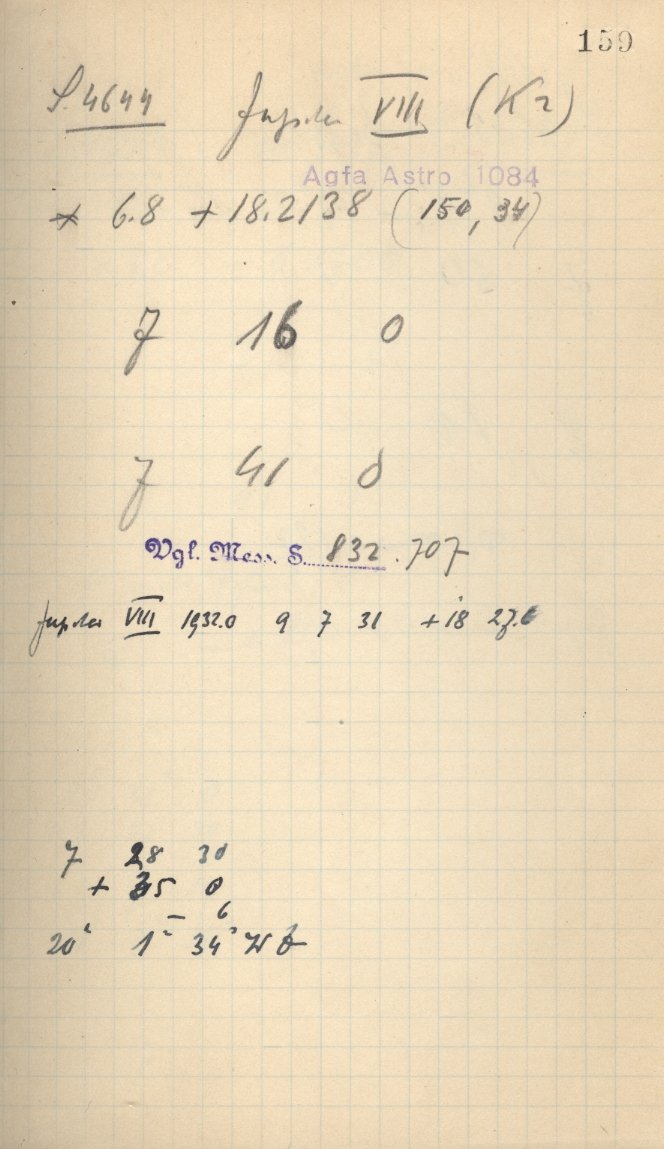 159
S.4644 Jupiter VIII (K2)
Agfa Astro 1084
* 6.8 + 18.2138 (150, 34)
7 16 0
7 41 0
Vgl. Mess. S. 832.707
Jupiter VIII 1932.0 9 7 31 + 18 27.6
7 28 30
+ 35 0
– 6
20 1 34